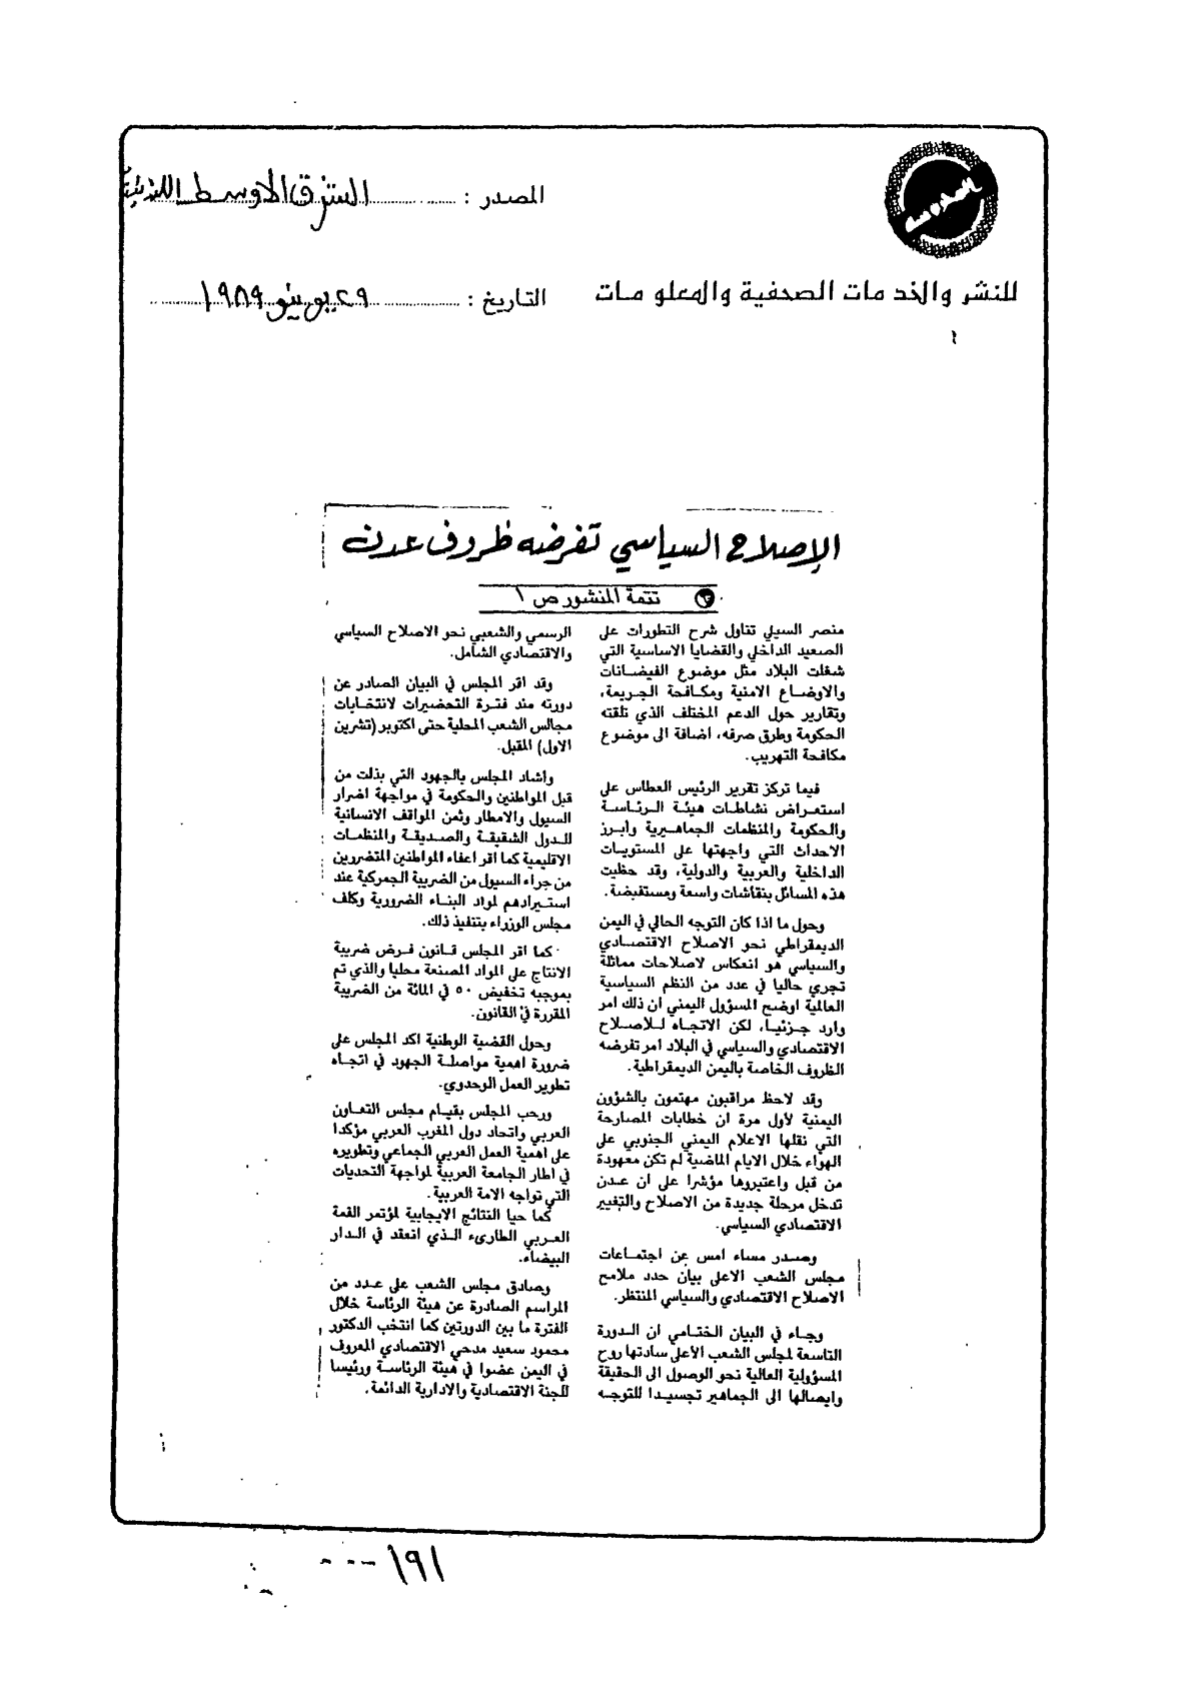 المصدر : الشرق الاوسط اللندنية
للنشر والخدمات الصحفية والمعلومات
التاريخ : ٢٩ يونيو ١٩٨٩
الإصلاح السياسي تفرضه ظروف عدن
تتمة المنشور ص ١
منصر السيلي تناول شرح التطورات على
الصعيد الداخلي والقضايا الاساسية التي
شغلت البلاد مثل موضوع الفيضانات
والاوضاع الامنية ومكافحة الجريمة،
وتقارير حول الدعم المختلف الذي تلقته
الحكومة وطرق صرفه، اضافة الى موضوع
مكافحة التهريب.
فيما تركز تقرير الرئيس العطاس على
استعراض نشاطات هيئة الرئاسة
والحكومة والمنظمات الجماهيرية وأبرز
الاحداث التي واجهتها على المستويات
الداخلية والعربية والدولية، وقد حظيت
هذه المسائل بنقاشات واسعة ومستفيضة.
وحول ما اذا كان التوجه الحالي في اليمن
الديمقراطي نحو الاصلاح الاقتصادي
والسياسي هو انعكاس لاصلاحات مماثلة
تجري حاليا في عدد من النظم السياسية
العالمية اوضح المسؤول اليمني ان ذلك امر
وارد جزئيا، لكن الاتجاه للاصلاح
الاقتصادي والسياسي في البلاد امر تفرضه
الظروف الخاصة باليمن الديمقراطية.
وقد لاحظ مراقبون مهتمون بالشؤون
اليمنية لأول مرة ان خطابات المصارحة
التي نقلها الاعلام اليمني الجنوبي على
الهواء خلال الايام الماضية لم تكن معهودة
من قبل واعتبروها مؤشرا على ان عدن
تدخل مرحلة جديدة من الاصلاح والتغيير
الاقتصادي السياسي.
وصدر مساء امس عن اجتماعات
مجلس الشعب الاعلى بيان حدد ملامح
الاصلاح الاقتصادي والسياسي المنتظر.
وجاء في البيان الختامي ان الدورة
التاسعة لمجلس الشعب الأعلى سادتها روح
المسؤولية العالية نحو الوصول الى الحقيقة
وايصالها الى الجماهير تجسيدا للتوجه
الرسمي والشعبي نحو الاصلاح السياسي
والاقتصادي الشامل.
وقد اقر المجلس في البيان الصادر عن
دورته مند فترة التحضيرات لانتخابات
مجالس الشعب المحلية حتى اكتوبر (تشرين
الاول) المقبل.
وأشاد المجلس بالجهود التي بذلت من
قبل المواطنين والحكومة في مواجهة اضرار
السيول والامطار وثمن المواقف الانسانية
للدول الشقيقة والصديقة والمنظمات
الاقليمية كما اقر اعفاء المواطنين المتضررين
من جراء السيول من الضريبة الجمركية عند
استيرادهم لمواد البناء الضرورية وكلف
مجلس الوزراء بتنفيذ ذلك.
كما اقر المجلس قانون فرض ضريبة
الانتاج على المواد المصنعة محليا والذي تم
بموجبه تخفيض ٥٠ في المائة من الضريبة
المقررة في القانون.
وحول القضية الوطنية اكد المجلس على
ضرورة اهمية مواصلة الجهود في اتجاه
تطوير العمل الوحدوي.
ورحب المجلس بقيام مجلس التعاون
العربي واتحاد دول المغرب العربي مؤكدا
على اهمية العمل العربي الجماعي وتطويره
في اطار الجامعة العربية لمواجهة التحديات
التي تواجه الامة العربية.
كما حيا النتائج الايجابية لمؤتمر القمة
العربي الطارىء الذي انعقد في الدار
البيضاء.
وصادق مجلس الشعب على عدد من
المراسم الصادرة عن هيئة الرئاسة خلال
الفترة ما بين الدورتين كما انتخب الدكتور
محمود سعيد مدحي الاقتصادي المعروف
في اليمن عضوا في هيئة الرئاسة ورئيسا
للجنة الاقتصادية والادارية الدائمة.
١٩١